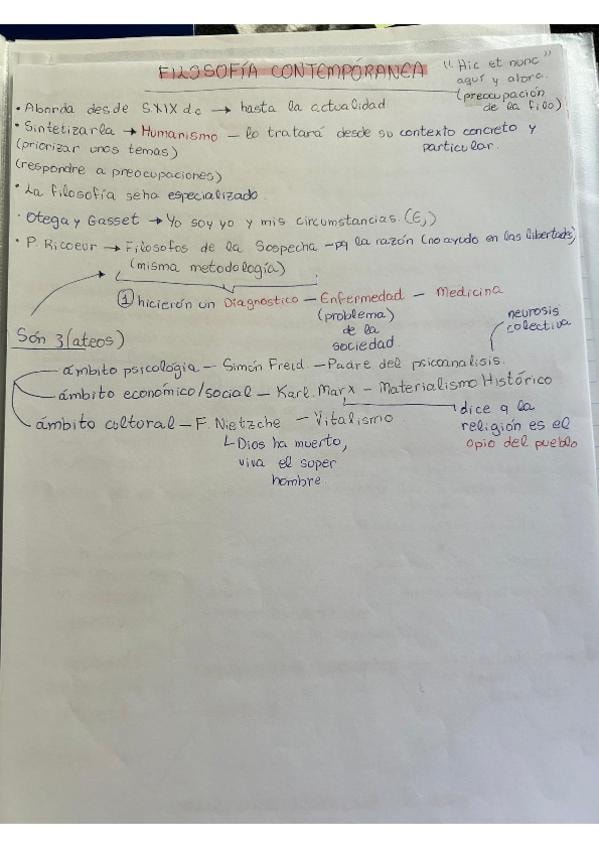 FILOSOFÍA CONTEMPÓRANEA
"Hic et nunc"
aquí y ahora.
(preocupación
de la filo)
• Aborda desde S.XIX d.c → hasta la actualidad
• Sintetizarla → Humanismo – lo tratará desde su contexto concreto y
particular.
(priorizar unos temas)
(respondre a preocupaciones)
• La filosofía se ha especializado.
• Otega y Gasset → Yo soy yo y mis circunstancias. (Ej)
• P. Ricoeur → Filosofos de la Sospecha – pq la razón (no ayudo en las libertads)
(misma metodología)
① hicierón un Diagnostico – Enfermedad – Medicina
(problema)
de la
sociedad
neurosis
colectiva
Són 3 (ateos)
ámbito psicológia – Simón Freid. – Padre del psicoanalisis.
ámbito económico/social – Karl. Marx – Materialismo Histórico
dice q la
religión es el
opio del pueblo
ámbito cultoral – F. Nietzche – Vitalismo
↳ Dios ha muerto,
viva el super
hombre.